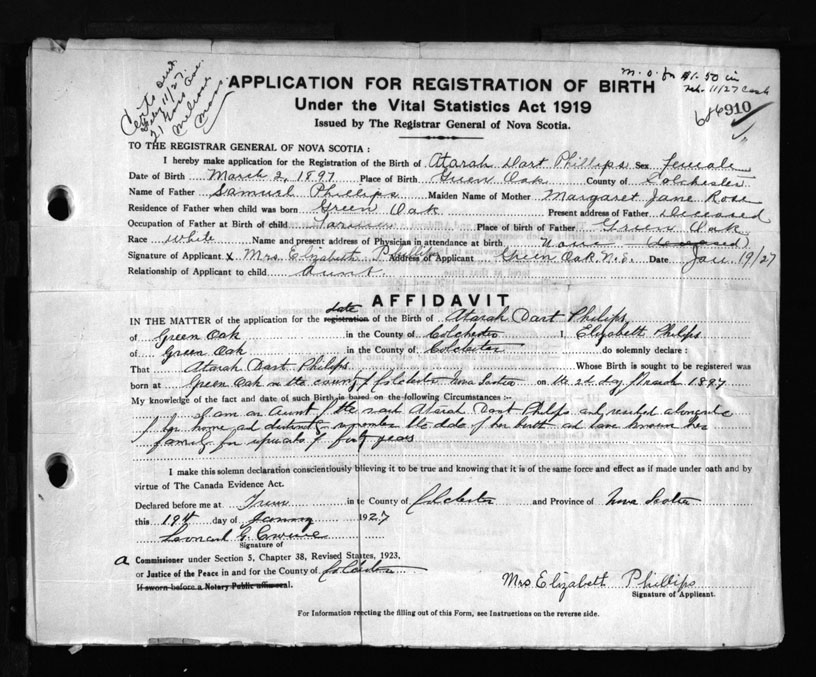 Certe Sent
Feby 11/27.
21 Ave
Melrose
Mass.
M. O. for $1.50 in
Feb. 11/27 Cash
APPLICATION FOR REGISTRATION OF BIRTH
Under the Vital Statistics Act 1919
Issued by The Registrar General of Nova Scotia.
686910
TO THE REGISTRAR GENERAL OF NOVA SCOTIA :
I hereby make application for the Registration of the Birth of Atarah Dart Phillips Sex female
Date of Birth March 2, 1897 Place of Birth Green Oak County of Colchester
Name of Father Samuel Phillips Maiden Name of Mother Margaret Jane Rose
Residence of Father when child was born Green Oak Present address of Father Deceased
Occupation of Father at Birth of child Farmer Place of birth of Father Green Oak
Race White Name and present address of Physician in attendance at birth None (Deceased)
Signature of Applicant x Mrs. Elizabeth Phillips Address of Applicant Green Oak. N.S. Date Jan. 19/27
Relationship of Applicant to child Aunt.
AFFIDAVIT
date
IN THE MATTER of the application for the registration of the Birth of Atarah Dart Philips
of Green Oak in the County of Colchester I, Elizabeth Philips
of Green Oak in the County of Colchester do solemnly declare :
That Atarah Dart Philips Whose Birth is sought to be registered was
born at Green Oak in the county of Colchester Nova Scotia on the 2d day of March 1897
My knowledge of the fact and date of such Birth is based on the following Circumstances :-
I am an Aunt of the said Atarah Dart Philps and resided alongside
of her home and distinctly remember the date of her birth and have known her
family for upwards of forty years
I make this solemn declaration conscientiously blieving it to be true and knowing that it is of the same force and effect as if made under oath and by
virtue of The Canada Evidence Act.
Declared before me at Truro in te County of Colchester and Province of Nova Scotia
this 19th day of January 1927
Leonard G.
Signature of
a Commissioner under Section 5, Chapter 38, Revised States, 1923,
or Justice of the Peace in and for the County of Colchester
If sworn before a Notary Public affix seal.
Mrs Elizabeth Phillips
Signature of Applicant.
For Information recting the filling out of this Form, see Instructions on the reverse side.